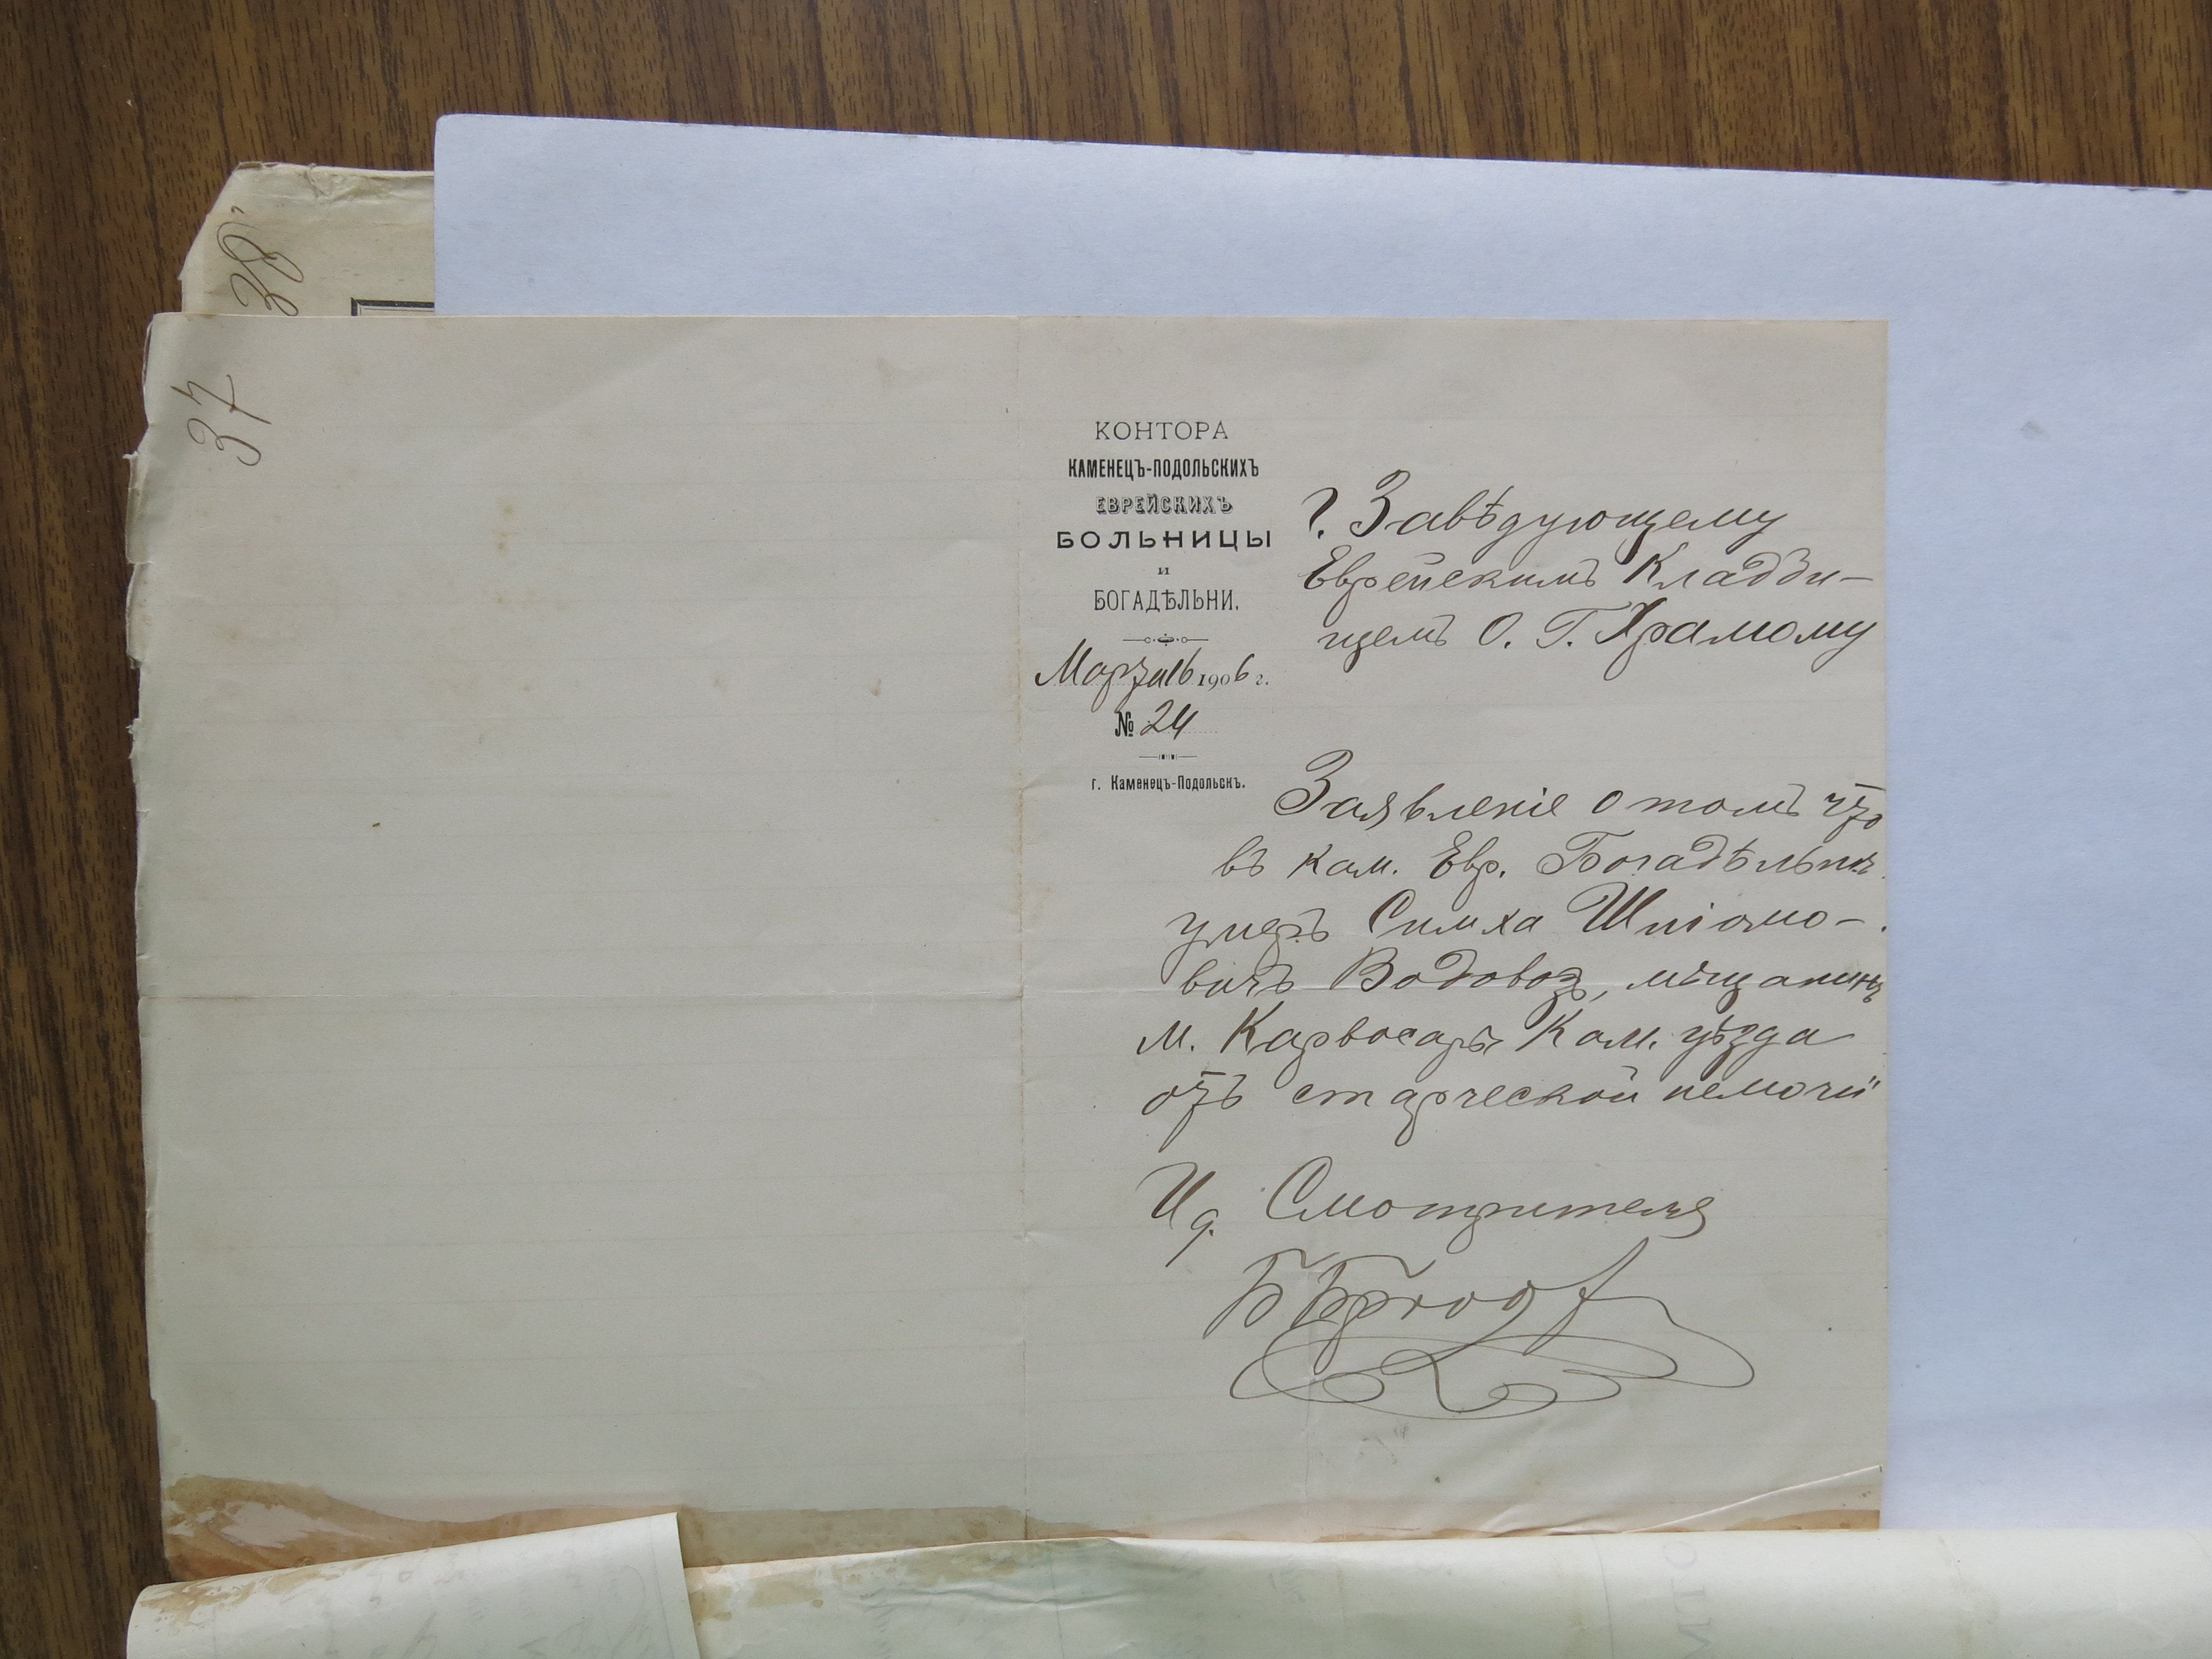 38
37
КОНТОРА
КАМЕНЕЦЪ-ПОДОЛЬСКИХЪ
ЕВРЕЙСКИХЪ
БОЛЬНИЦЫ
и
БОГАДѢЛЬНИ.
Марта 16 1906 г.
№ 24
г. Каменецъ-Подольскъ.
Г. Завѣдующему
Еврейскимъ Кладби-
щемъ О. Г. Храмому
Заявленіе о томъ что
въ Кам. Евр. Богадѣльнѣ
умеръ Симха Шліомо-
вичъ Водовозъ, мѣщанинъ
м. Карвосары Кам. уѣзда
отъ старческой немочи
И д. Смотрителя